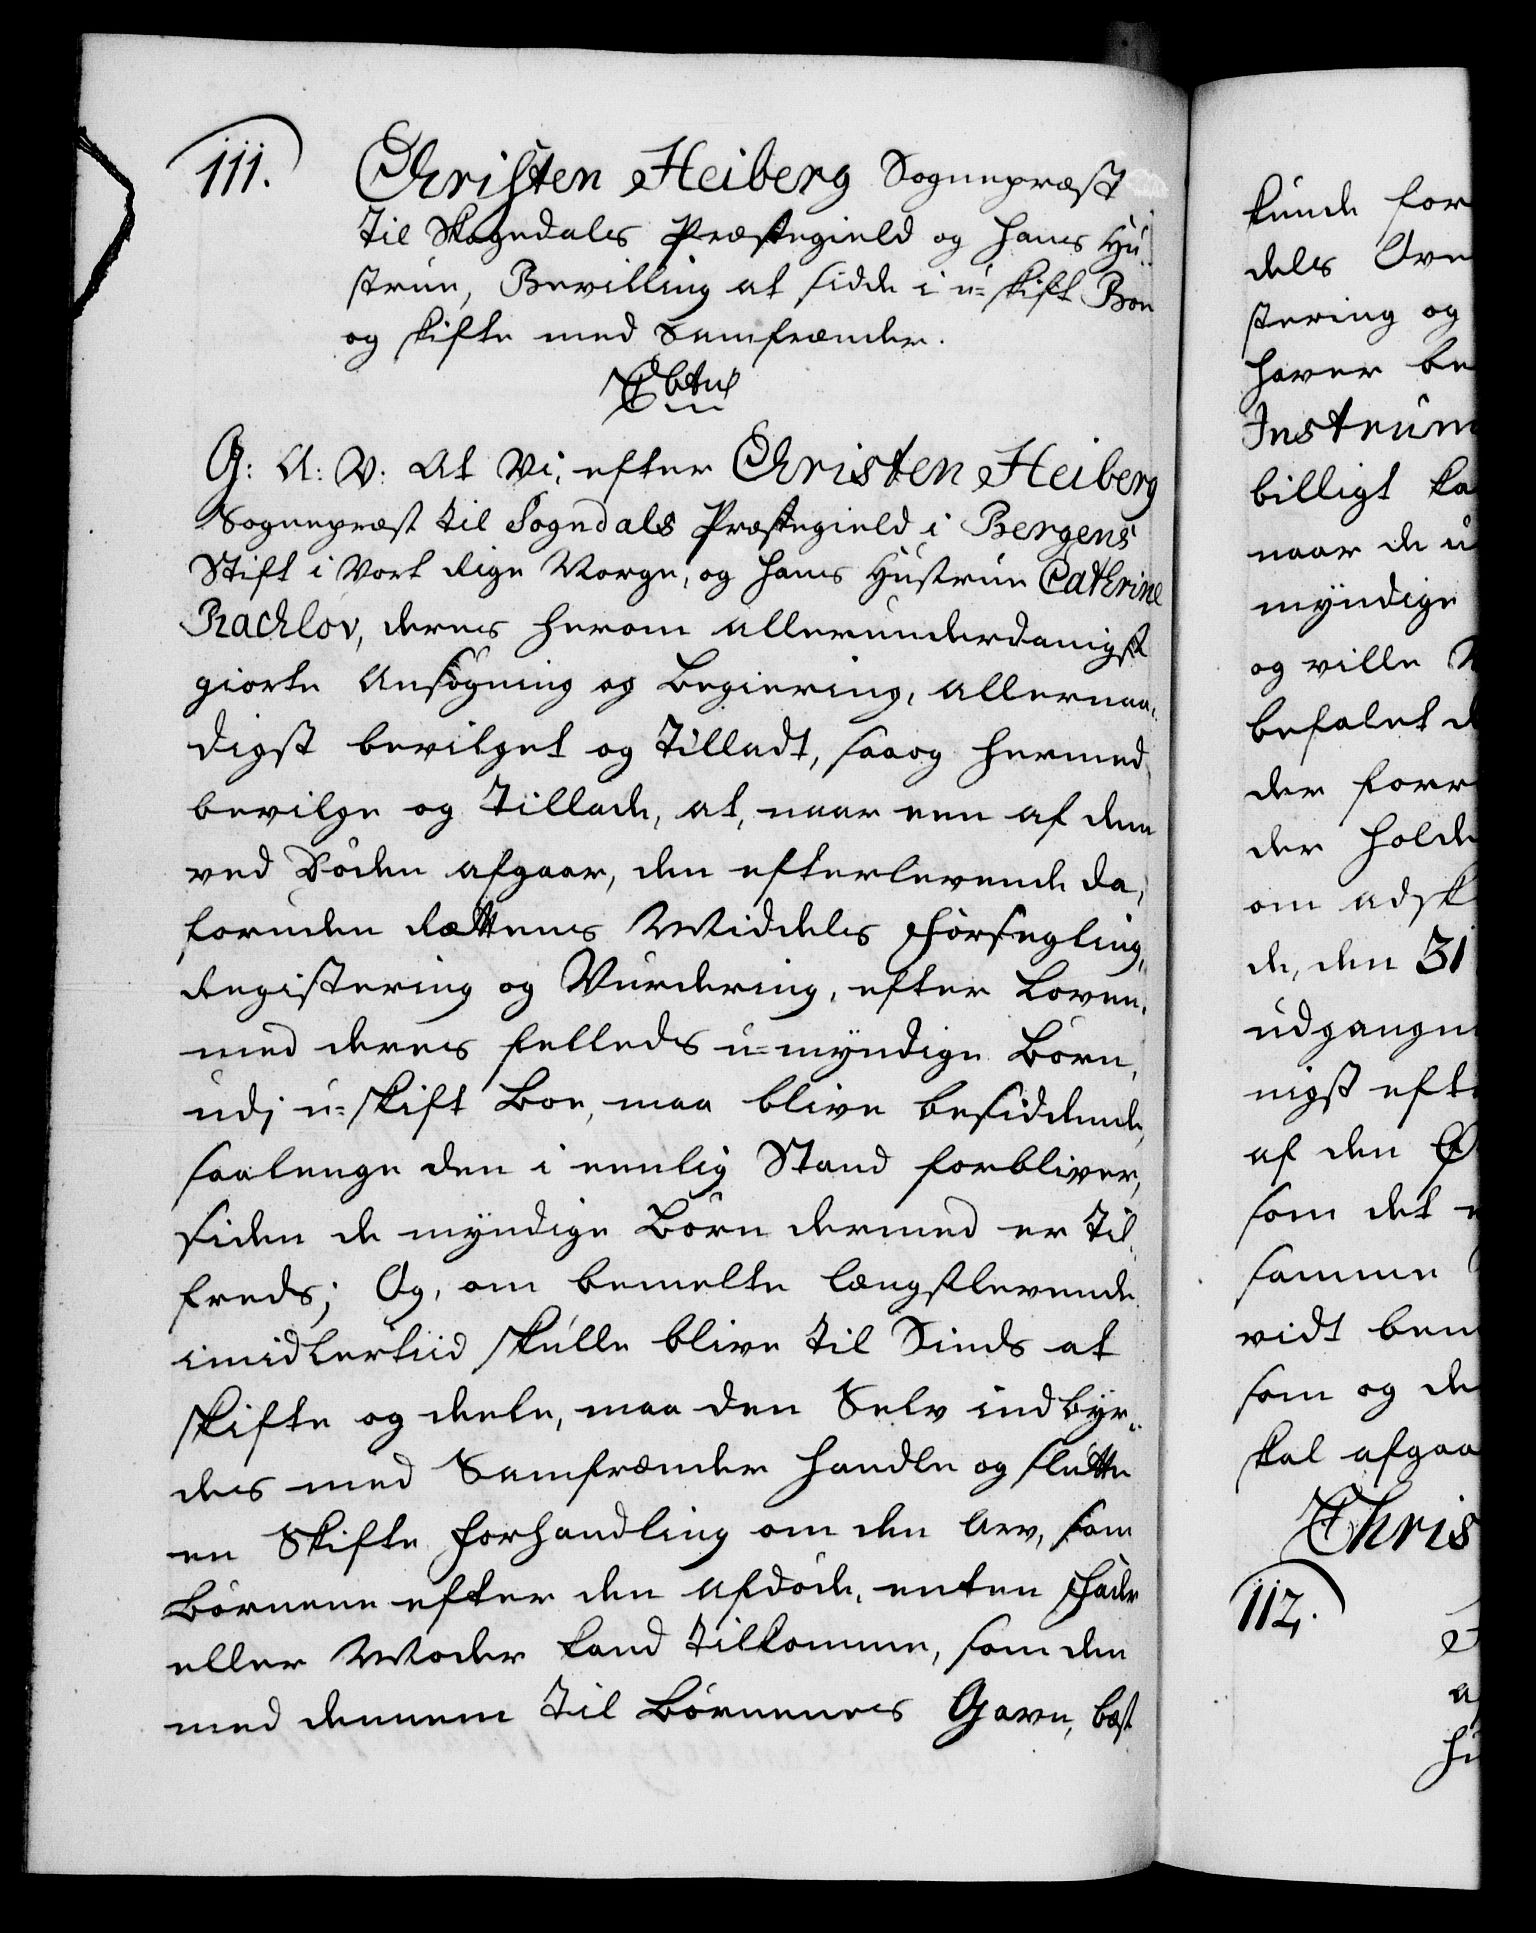 111.
Christen Heiberg Sognepræst
til Sogndals Præstegield og hans Hu-
strue, Bevilling at sidde i u-skift Boe
og skifte med Samfrænder.
G: A: V: At Vi, efter Christen Heiberg
Sognepræst til Sogndals Præstegield i Bergens
Stift i Vort Rige Norge, og hans Hustrue Cathrine
Rachløv, deres herom allerunderdanigst
giorte Ansøgning og Begiering, allernaa-
digst bevilget og Tilladt, saa og hermed
bevilge og Tillade, at, naar een af dem
ved Døden afgaar, den efterlevende da,
foruden Rættens Middels Forsegling,
Registering og Vurdering, efter Loven,
med deres felleds u-myndige Børn,
udj u-skift Boe, maa blive besiddende,
saalenge den i eenlig Stand forbliver,
siden de myndige Børn dermed er til-
freds; Og, om bemelte længstlevende
imidlertiid skulle blive til Sinds at
skifte og deele, maa den Selv indbyr-
des med Samfrænder handle og slutte
en Skifte Forhandling om den Arv, som
Børnene efter den afdøde, enten Fader
eller Moder kand tilkomme, som den
med dennem til Børnenes Gavn, best
kunde for
dels Ove
stering og
haver be
Instrum
billigt ka
naar de u
myndige
og ville
befalet d
der forr
der holde
om adsk
de, den 31
udgangne
nigst efte
af den
som det
samme
vidt bem
som og de
skal afgaa
Chris
112.